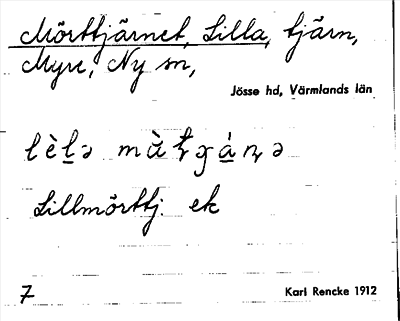 Mörttjärnet, Lilla, tjärn,
Myre, Ny sn,
Jösse hd, Värmlands län
Lillmörttj. ek
7
Karl Rencke 1912